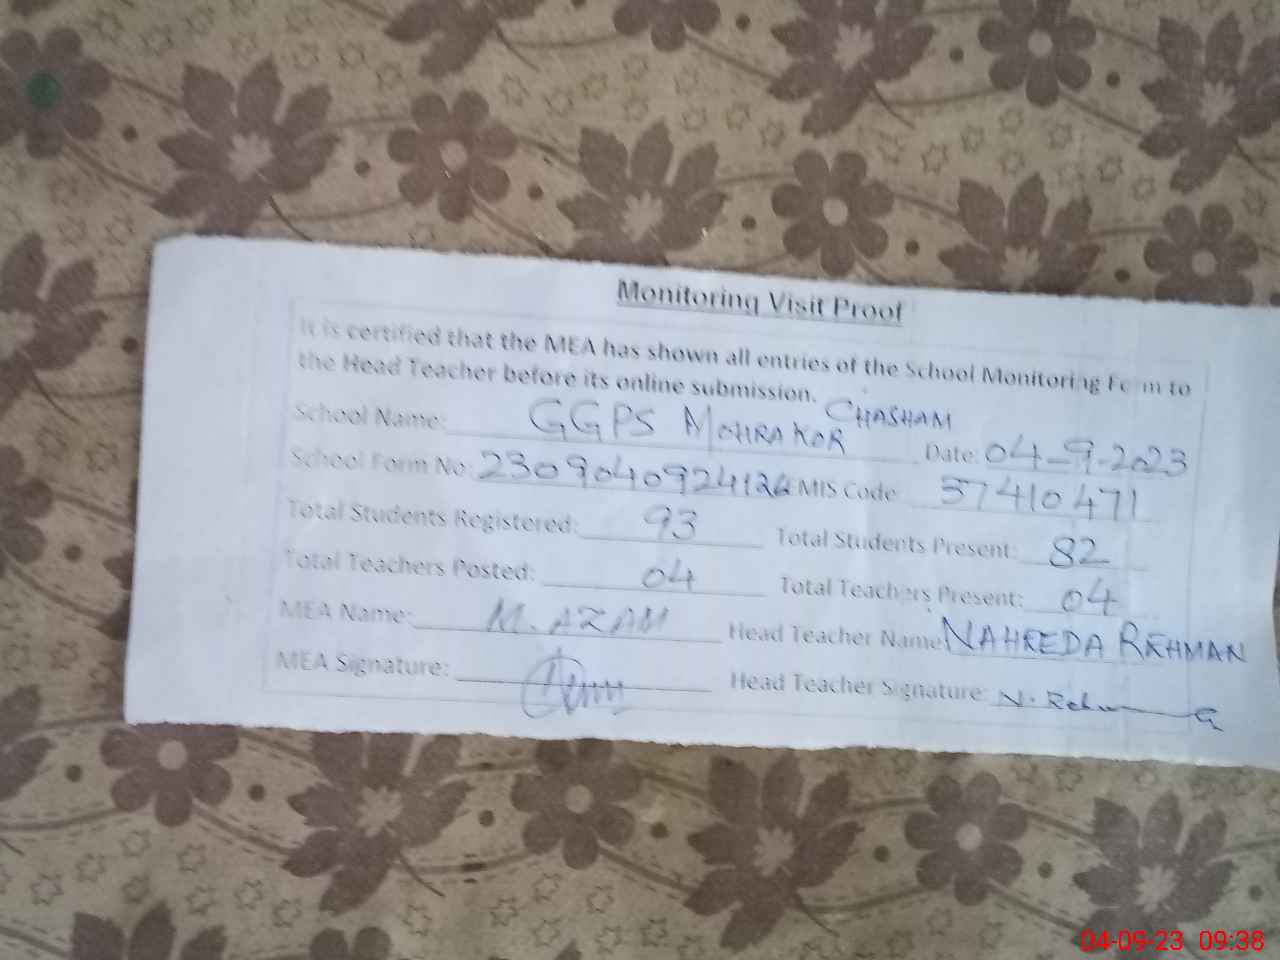 Monitoring Visit Proof
It is certified that the MEA has shown all entries of the School Monitoring Form to
the Head Teacher before its online submission.
School Name: GGPS MOHRA KOR CHASHAM Date: 04-9-2023
School Form No: 2309040924126 EMIS Code 37410471
Total Students Registered: 93 Total Students Present: 82
Total Teachers Posted: 04 Total Teachers Present: 04
MEA Name: M. AZAM Head Teacher Name: NAHEEDA REHMAN
MEA Signature: Head Teacher Signature: N. Rehman
04-09-23 09:38